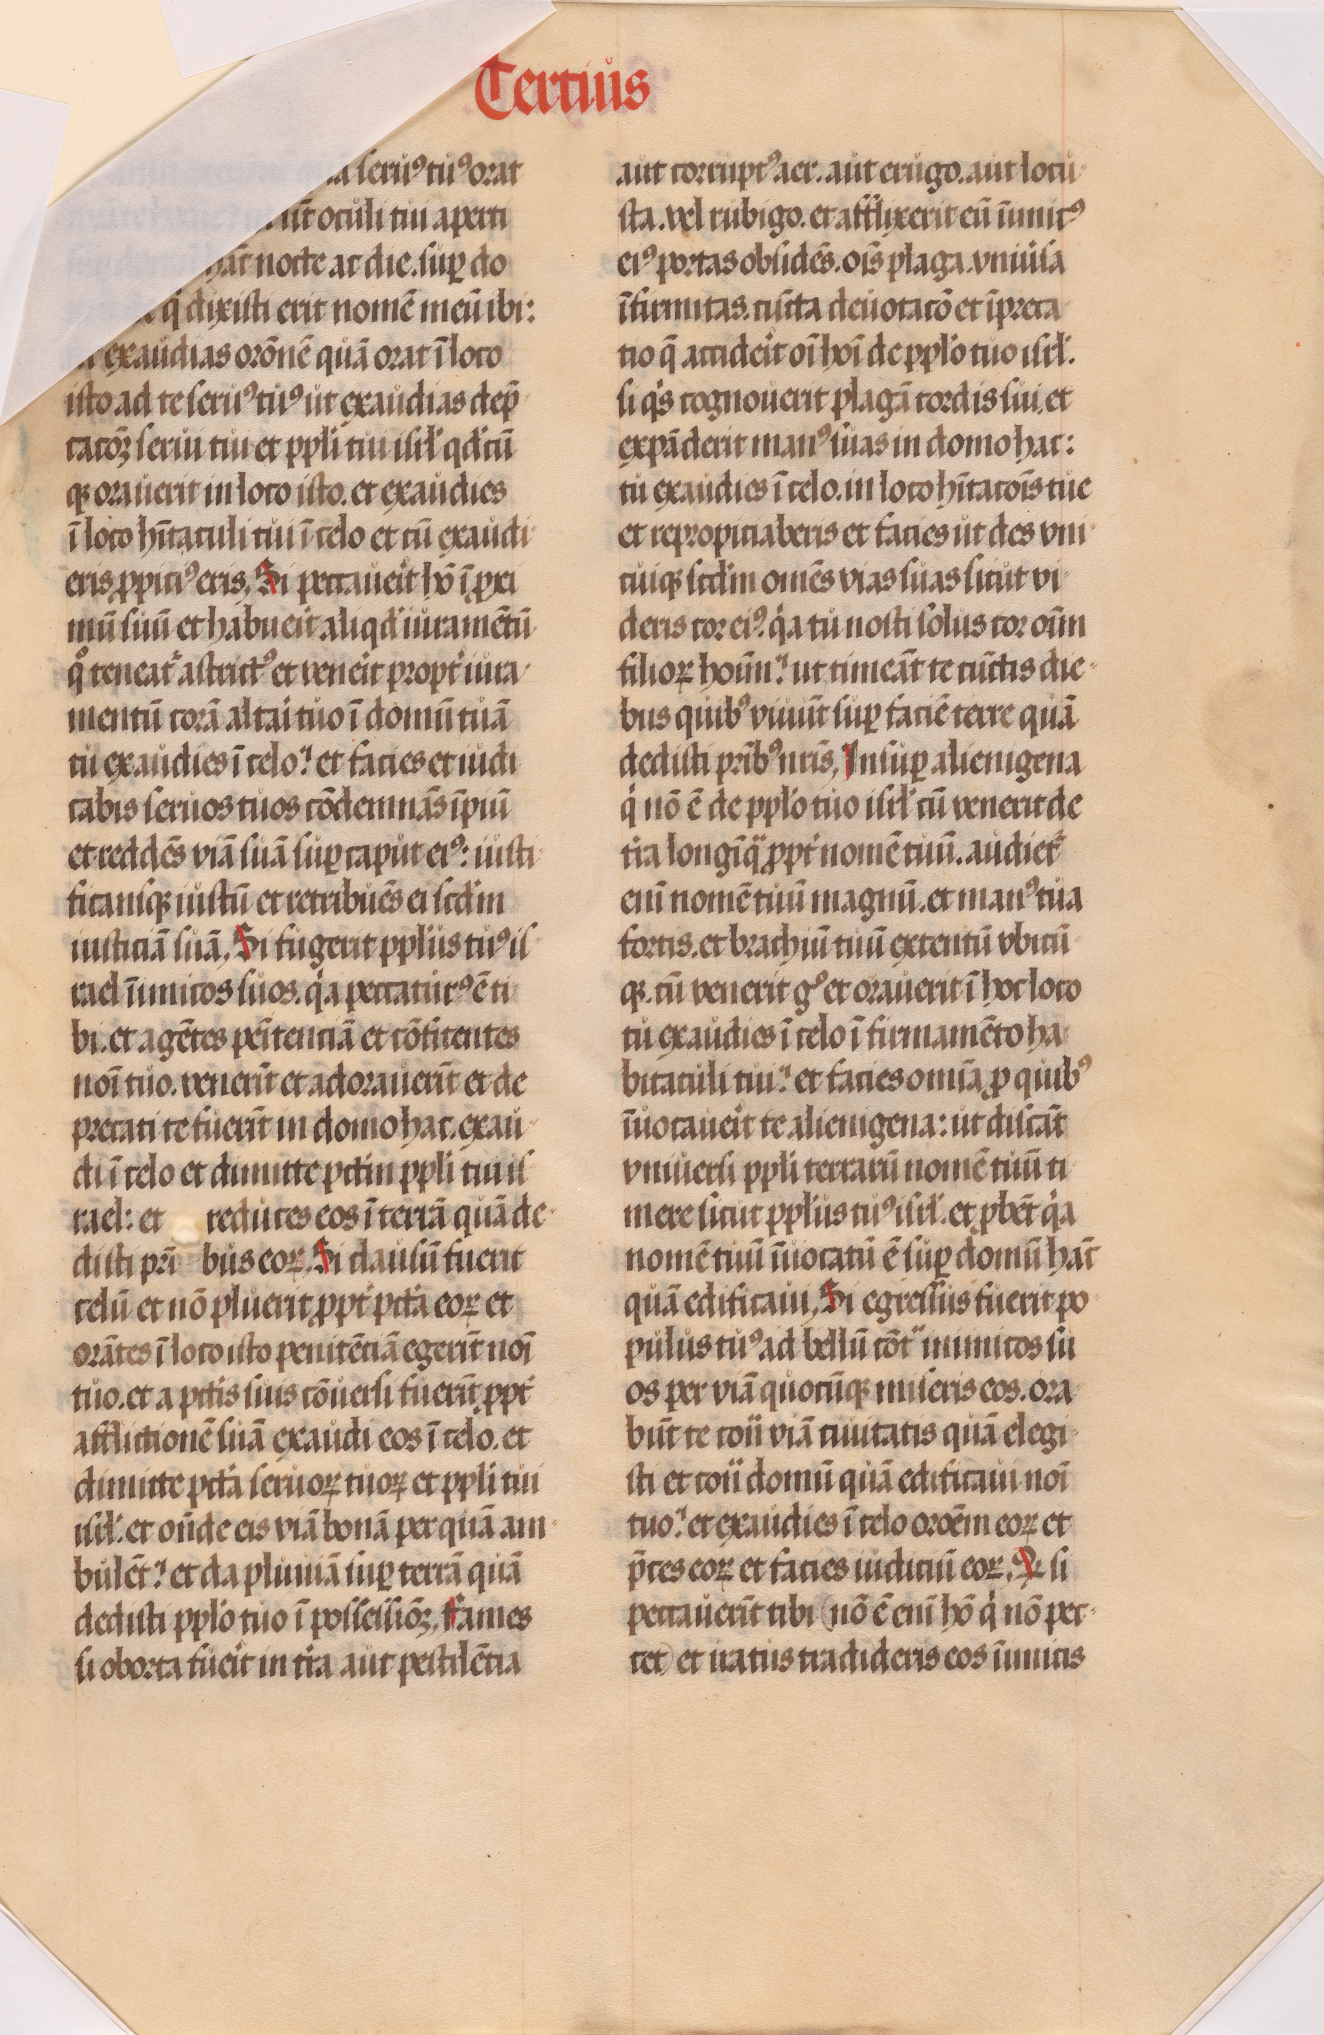 Tertius
seru⁹ tu⁹ orat
ut̄ oculi tui aperti
hāc nocte ac die. suꝑ do
q̇ dixisti erit nomē meū ibi:
exaudias orōnē quā orat ī loco
isto ad te seru⁹ tu⁹ ut exaudias dep̄
catōꝫ serui tui et ppl̓i tui isrl̓ qd̓ cū
qꝫ orauerit in loco isto. et exaudies
ī loco hīt̄aculi tui ī celo et cū exaudi
eris ꝓpici⁹ eris, Si peccaueı̓t hō ī ꝓxi
mū suū et habueı̓t aliqd̓ iuramētū
qͦ teneat᷑ astrict⁹ et veneı̓t propt̓ iura
mentū corā altaı̓ tuo ī domū tuā
tu exaudies ī celo: et facies et iudi
cabis seruos tuos cōdemnās īpiū
et reddēs viā suā suꝑ caput ei⁹: iusti
ficansqꝫ iustū et retribuēs ei scd̓m
iusticiā suā, Si fugerit ppl̓us tu⁹ is
rael īimicos suos. q̇a peccatur⁹ ē ti
bi. et agētes penı̄tenciā et cōfitentes
noı̄ tuo. venerīt et adorauerīt et de
precati te fuerīt in domo hac. exau
di ī celo et dimitte pctm̄ ppl̓i tui is
rael: et reduces eos ī terrā quā de
disti prı̄ bus eoꝝ, Si clausū fuerit
celū et nō pluerit ꝓpt̓ pctā eoꝝ et
orātes ī loco isto penitēciā egerīt noı̄
tuo. et a pctı̄s suis cōuersi fuerīt ꝓpt̓
afflictionē suā exaudi eos ī celo. et
dimitte pctā seruoꝝ tuoꝝ et ppl̓i tui
isrl̓. et on̄de eis viā bonā per quā am
bulēt: et da pluuiā suꝑ terrā quā
dedisti ppl̓o tuo ī possessiōꝫ, Fames
si oborta fueı̓t in tı̓a aut pestilētia
aut corrupt⁹ aer. aut erugo. aut locu
sta. vel rubigo. et afflixerit eū īimic⁹
ei⁹ portas obsidēs. oı̄s plaga. vniu̓sa
īfirmitas. cūcta deuotatō et īpreca
tio q̄ accideı̓t oı̄ hoı̄ de ppl̓o tuo isrl̓.
si q̇s cognouerit plagā cordis sui. et
expāderit man⁹ suas in domo hac:
tu exaudies ī celo. in loco hīt̄atoı̄s tue
et repropiciaberis et facies ut des vni
cuiqꝫ scd̓m om̄es vias suas sicut vi
deris cor ei⁹. q̇a tu nosti solus cor oīm
filioꝝ hoīm: ut timeāt te cūctis die
bus quib⁹ viuūt suꝑ faciē terre quā
dedisti prı̄b⁹ nrı̄s, Insuꝑ alienigena
q̇ nō ē de ppl̓o tuo isrl̓ cū venerit de
tı̓a longīqᷓ ꝓpt̓ nomē tuū. audiet᷑
enī nomē tuū magnū. et man⁹ tua
fortis. et brachiū tuū extentū vbicū
qꝫ. cū venerit g⁹ et orauerit ī hoc loco
tu exaudies ī celo ī firmamēto ha
bitaculi tui: et facies omīa ꝓ quib⁹
īuocaueı̓t te alienigena: ut discāt
vniuersi ppl̓i terrarū nomē tuū ti
mere sicut ppl̓us tu⁹ isrl̓. et ꝓbēt q̇a
nomē tuū īuocatū ē suꝑ domū hāc
quā edificaui, Si egressus fuerit po
pulus tu⁹ ad bellū cōtᷓ inimicos su
os per viā quocūqꝫ miseris eos. ora
būt te cōtᷓ viā ciuitatis quā elegi
sti et cōtᷓ domū quā edificaui noı̄
tuo: et exaudies ī celo oroēm eoꝝ et
p̄ces eoꝝ et facies iudiciū eoꝝ, Qꝫ si
peccauerīt tibi (nō ē enī hō q̇ nō pec
cet) et iratus tradideris eos īimicis